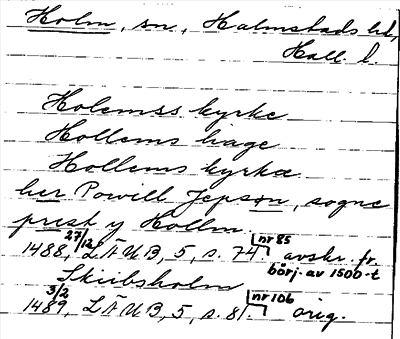 Holm, sn, Halmstads hd,
Hall. l.
Holemss kyrke
Hollems hage
Hollems kyrkæ
her Powill Jepson, sogne
prest y Hollm.
1488 27/12, LÄUB, 5, s. 74. nr 85 avskr. fr. börj. av 1500-t
Skiibsholm
1489 3/2, LÄUB, 5, s. 81. nr 106 orig.